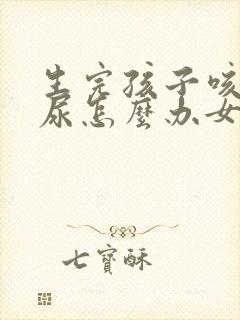 生完孩子咳
尿怎麼办女
七寶酥